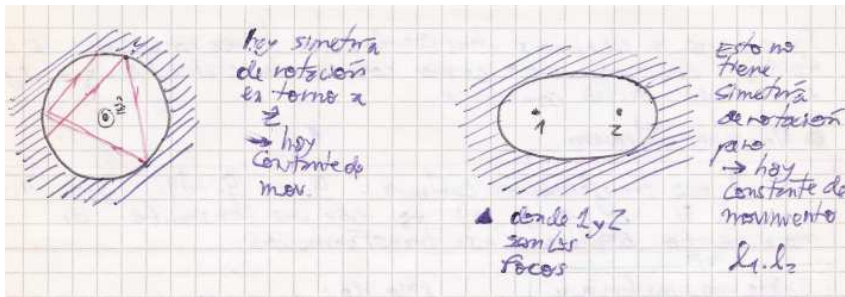 ẑ
hay simetría
de rotación
en torno a
ẑ
→ hay
constante de
mov.
1
2
▲ donde 1 y 2
son los
focos
Esto no
tiene
simetría
de rotación
pero
→ hay
constante de
movimiento
l₁·l₂